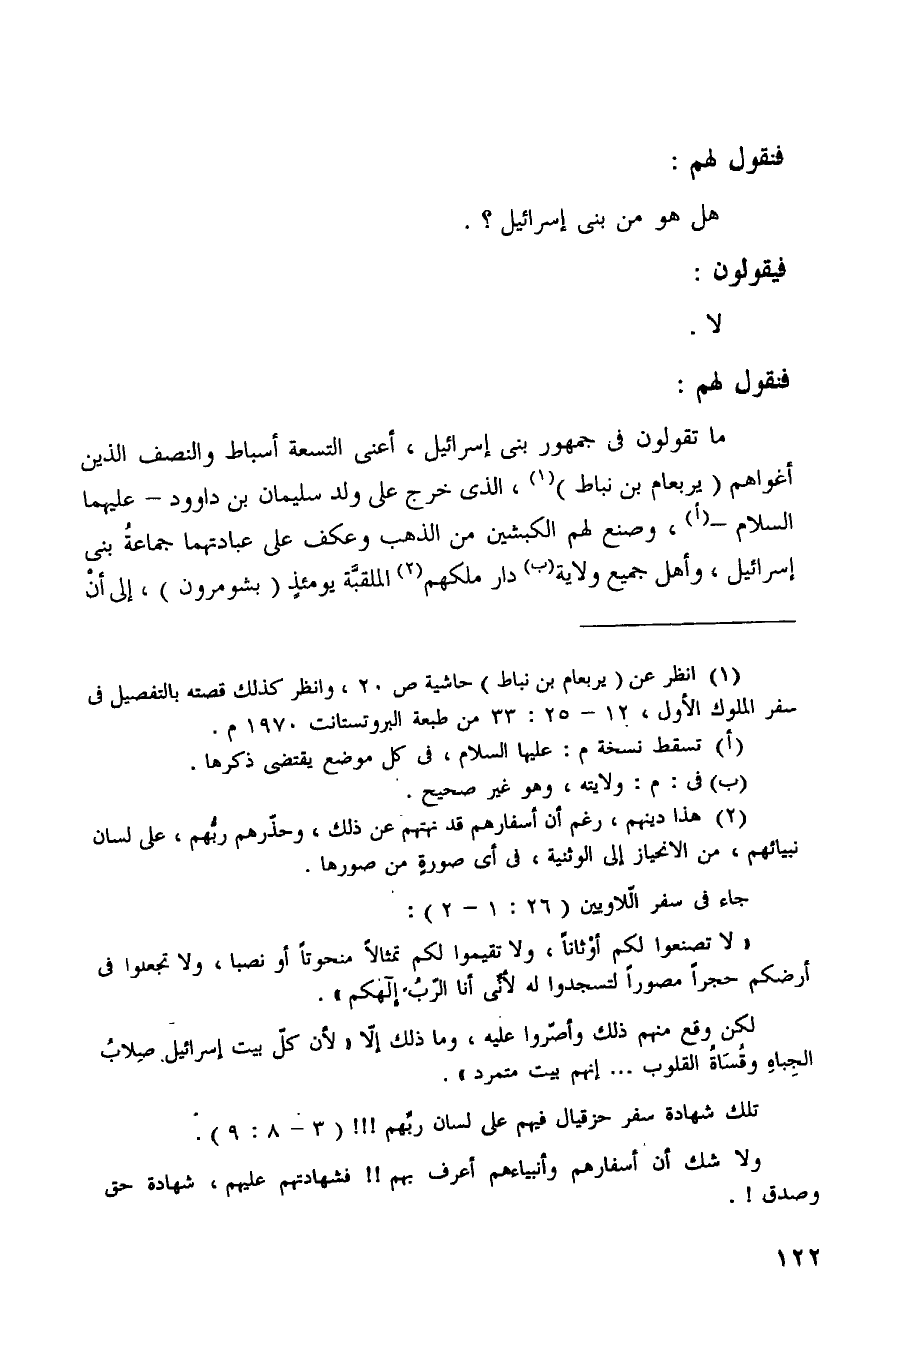 فنقول لهم :
هل هو من بنى إسرائيل ؟ .
فيقولون :
لا .
فنقول لهم :
ما تقولون فى جمهور بنى إسرائيل ، أعنى التسعة أسباط والنصف الذين
أغواهم ( يربعام بن نباط )(١) ، الذى خرج على ولد سليمان بن داوود – عليهما
السلام –(أ) ، وصنع لهم الكبشين من الذهب وعكف على عبادتهما جماعةُ بنى
إسرائيل ، وأهل جميع ولاية(ب) دار ملكهم(٢) الملقبَّة يومئذٍ ( بشومرون ) ، إلى أنْ
(١) انظر عن ( يربعام بن نباط ) حاشية ص ٢٠ ، وانظر كذلك قصته بالتفصيل فى
سفر الملوك الأول ، ١٢ – ٢٥ : ٣٣ من طبعة البروتستانت ١٩٧٠ م .
(أ) تسقط نسخة م : عليها السلام ، فى كل موضع يقتضى ذكرها .
(ب) فى : م : ولايته ، وهو غير صحيح .
(٢) هذا دينهم ، رغم أن أسفارهم قد نهتهم عن ذلك ، وحذّرهم ربُّهم ، على لسان
نبيائهم ، من الانحياز إلى الوثنية ، فى أى صورةٍ من صورها .
جاء فى سفر الّلاويين ( ٢٦ : ١ – ٢ ) :
« لا تصنعوا لكم أوْثاناً ، ولا تقيموا لكم تمثالاً منحوتاً أو نصبا ، ولا تجعلوا فى
أرضكم حجراً مصوراً لتسجدوا له لأنّى أنا الرّبُ إلَهكم » .
لكن وقع منهم ذلك وأصّروا عليه ، وما ذلك إلّا « لأن كلّ بيت إسرائيل صِلابُ
الجِباهِ وقُسَاةُ القلوب ... إنهم بيت متمرد » .
تلك شهادة سفر حزقيال فيهم على لسان ربِّهم !!! ( ٣ – ٨ : ٩ ) .
ولا شك أن أسفارهم وأنبياءهم أعرف بهم !! فشهادتهم عليهم ، شهادة حق
وصدق ! .
١٢٢